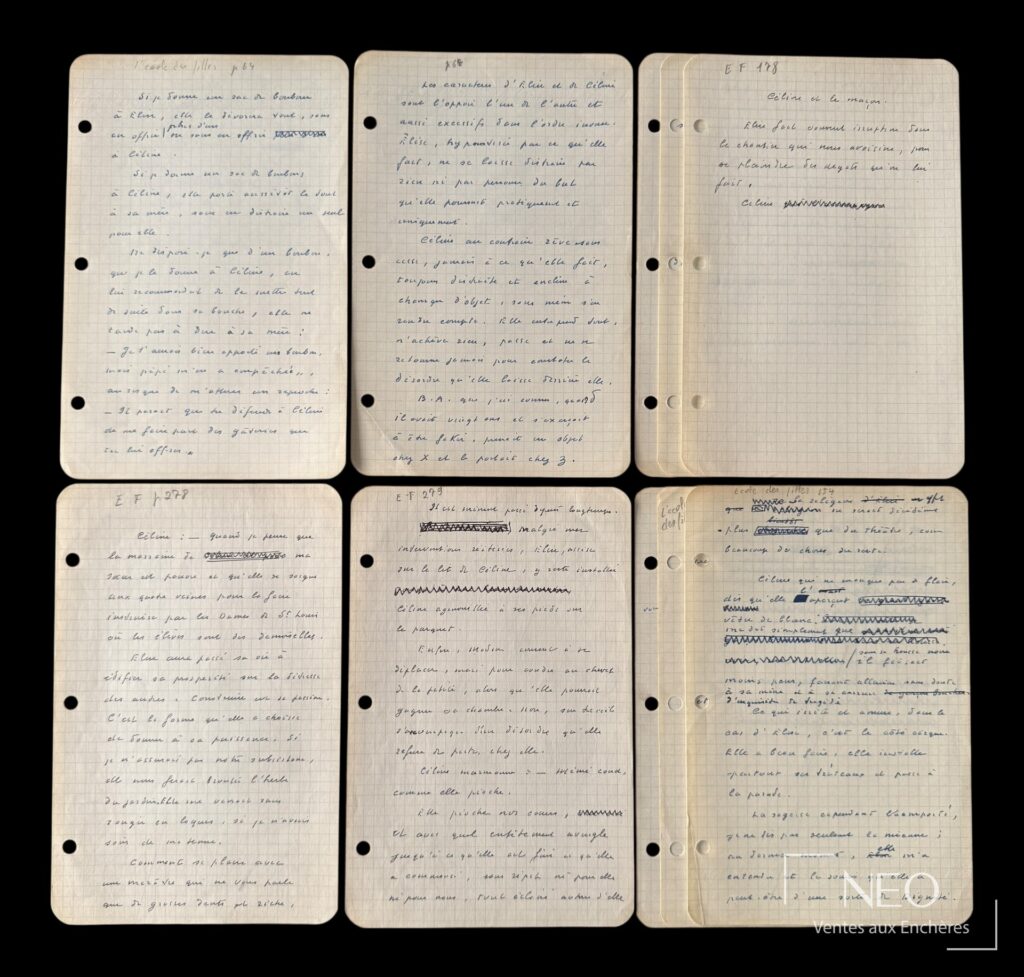 l'école des filles p 64
Si je donne un sac de bonbons
à Elise, elle le dévorera tout, sans
en offrir plus d'un ou sans en offrir
à Céline.
Si je donne un sac de bonbons
à Céline, elle porte aussitôt le tout
à sa mère, sans en distraire un seul
pour elle.
Ne dispose-je que d'un bonbon,
que je le donne à Céline, en
lui recommandant de le mettre tout
de suite dans sa bouche, elle ne
tarde pas à dire à sa mère :
— Je t'aurais bien apporté un bonbon,
mais pépé m'en a empêchée,
au risque de m'attirer un reproche :
— Il paraît que tu défends à Céline
de me faire part des gâteries que
tu lui offres.
p 68
Les caractères d'Elise et de Céline
sont l'opposé l'un de l'autre et
aussi excessifs dans l'ordre inverse.
Élise, hypnotisée par ce qu'elle
fait, ne se laisse distraire par
rien ni par personne du but
qu'elle poursuit pratiquement et
uniquement.
Céline au contraire rêve sans
cesse, jamais à ce qu'elle fait,
toujours distraite et encline à
changer d'objet, sans même s'en
rendre compte. Elle entreprend tout,
n'achève rien, passe et ne se
retourne jamais pour constater le
désordre qu'elle laisse derrière elle.
B.A. que j'ai connu, quand
il avait vingt ans et s'exerçait
à être fakir, prenait un objet
chez X et le portait chez Z.
E F 178
Céline et le maçon.
Elise fait souvent irruption dans
le chantier qui nous avoisine, pour
se plaindre des dégâts qu'on lui
fait.
Céline
E F p 278
Céline : — Quand je pense que
la marraine de ma
sœur est pauvre et qu'elle se saigne
aux quatre veines pour la faire
instruire par les Dames de St Louis
où les élèves sont des demoiselles.
Elise aura passé sa vie à
édifier sa prospérité sur la détresse
des autres. Construire est sa passion.
C'est la forme qu'elle a choisie
de donner à sa puissance. Si
je n'assurais pas notre subsistance,
elle nous ferait brouter l'herbe
du jardin
songer en loques, si je n'avais
soin de ma tenue.
Comment se plaire avec
une marâtre qui ne vous parle
que de grosses dents et riche,
E F 279
Il est minuit passé depuis longtemps.
malgré mes
interventions réitérées, Elise, assise
sur le lit de Céline, y reste installée
Céline agenouillée à ses pieds sur
le parquet.
Enfin, Madame consent à se
déplacer, mais pour coudre au chevet
de la petite, alors qu'elle pourrait
gagner sa chambre. Non, son travail
s'accompagne d'un désordre qu'elle
refuse de porter chez elle.
Céline marmonne : — Mémé coud,
comme elle pioche.
Elle pioche nos cœurs,
et avec quel entêtement aveugle
jusqu'à ce qu'elle ait fini ce qu'elle
a commencé, sans répit ni pour elle
ni pour nous, tout éclairé autour d'elle
l'école des fi
école des filles 184
la religion
que
plus que du théâtre, comme
beaucoup de choses du reste.
Céline qui ne manque pas de flair,
dès qu'elle l'aperçoit
vêtue de blanc,
me dit simplement que
sans sa housse noire
il fallait
moins pour, faisant allusion sans doute
à sa mère et à sa
d'inquisiteur de tragédie
Ce qui irrite et amuse, dans le
cas d'Elise, c'est le côté cirque.
Elle a beau faire, elle installe
partout ses tréteaux et passe à
la parade.
La sagesse cependant l'emporte,
je ne dis pas seulement la mienne ;
au dernier moment, elle m'a
entendu et
peut-être d'une sorte de dignité.
NEO
Ventes aux Enchères